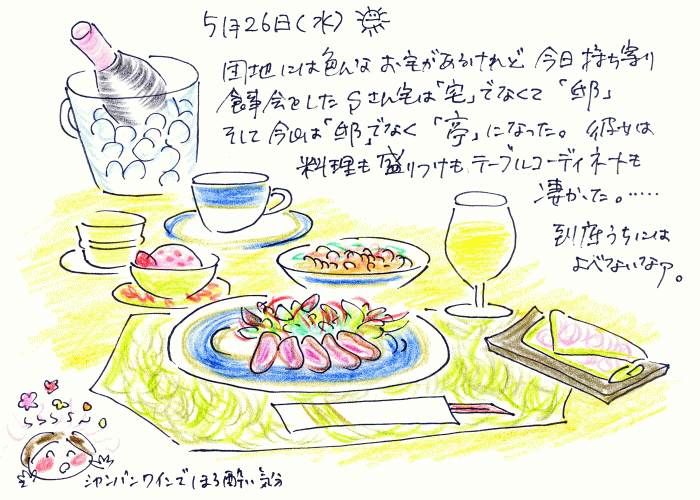 5月26日(水)
団地には色んなお宅があるけれど 今日持ち寄り
食事会をしたSさん宅は「宅」でなくて「邸」
そして今日は「邸」でなく「亭」になった。彼女は
料理も盛りつけも、テーブルコーディネートも
凄かった。……
到底うちには
よべないなァ。
シャンパンワインでほろ酔い気分